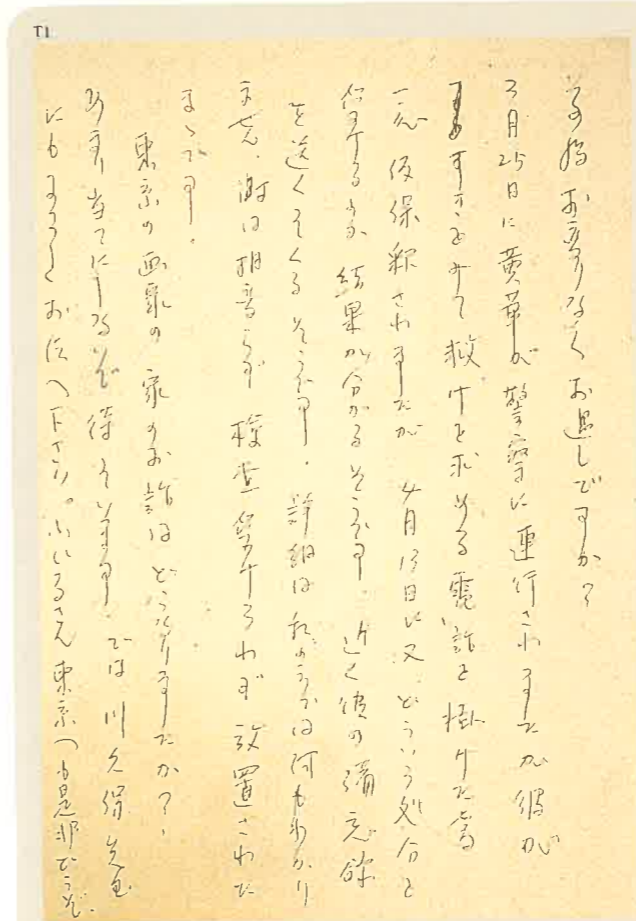 T1
其後お変りなくお過しですか？
3月25日に黄華が警察に連行されましたが彼が
すきをみて救けを求める電話を掛けた為
一応仮保釈されましたが 4月13日に又どういう処分を
受けるか結果が分かるそうです。近く彼の
を送ってくるそうです。詳細は私の方では何もわかり
ません。謝は相変らず検査受けられず放置された
まゝです。
東京の画家の家のお話はどうなりましたか？
あまり当てにしないで待っています。では川久保先生
にもよろしくお伝へ下さい。 東京へも是非どうぞ。